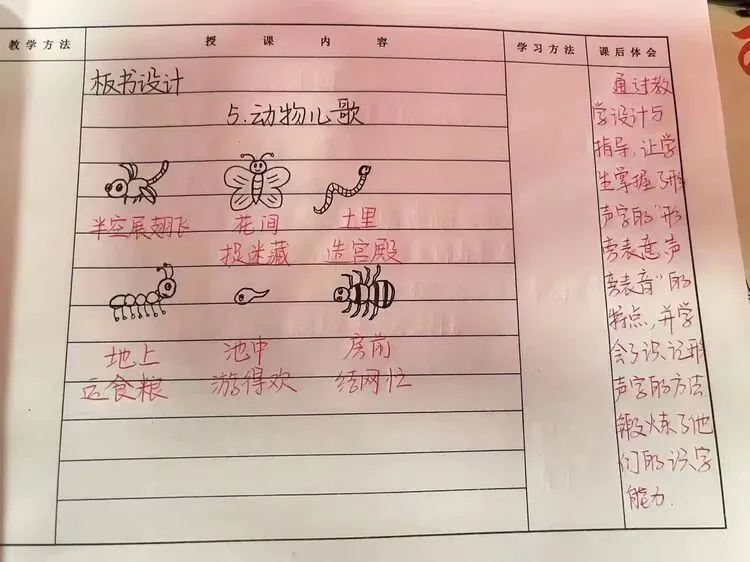 教学方法 授课内容 学习方法 课后体会
板书设计
5.动物儿歌
半空展翅飞 花间 土里
捉迷藏 造宫殿
地上 池中 房前
运食粮 游得欢 结网忙
通过教
学设计与
指导,让学
生掌握了形
声字的“形
旁表意,声
旁表音”的
特点,并学
会了识记形
声字的方法
锻炼了他
们的识字
能力.